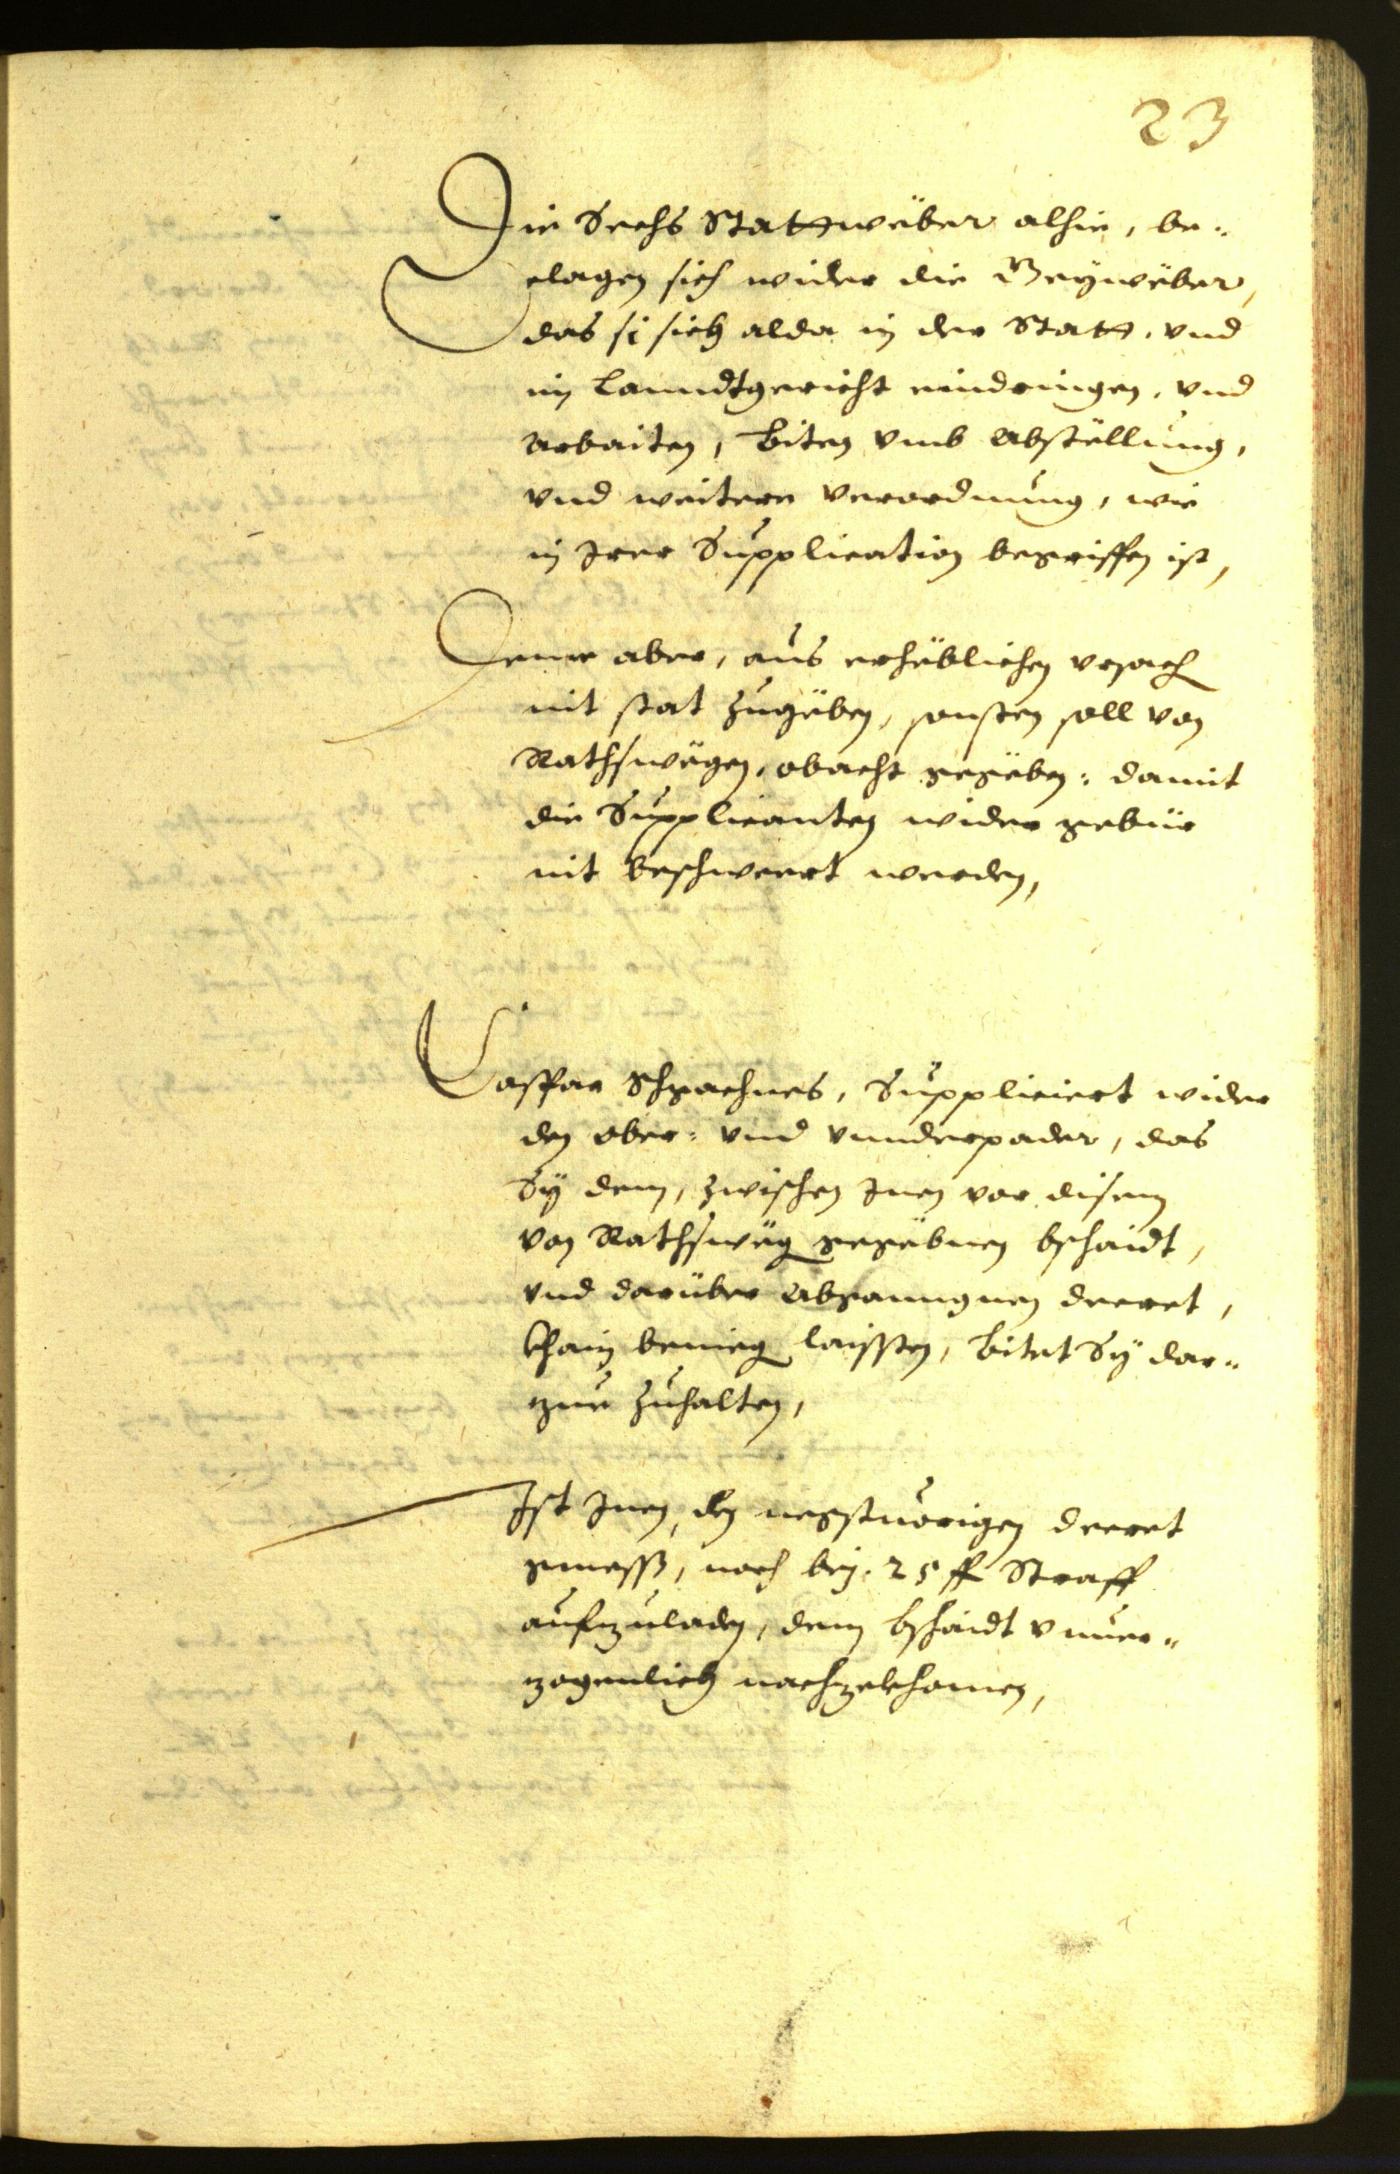 23
Die Sechs Stattwëber alhie, be-
clagen sich wider die Beÿwëber,
das si sich alda in der Statt, vnd
im Lanndtgericht eindringen, vnd
Arbaiten, Biten vmb Abstëllung,
vnd weitere Verordnung, wie
in Irer Supplication begriffen ist,
Deme aber, aus erhëblichen vrsach
nit stat zugëben, sonsten soll von
Rathswëgen, obacht gegëben: damit
die Supplicanten wider gebür
nit beschwert werden,
Caspar Schgachnes, Suppliciert wider
den ober: vnd vnnderpader, das
Sÿ dem, zwischen Inen vor disem
von Rathswëg gegëbnen bschaidt,
vnd darüber Abganngnen decret,
khain benieg laissten, Bitet Sÿ dar-
zue zuhalten,
Ist Inen, den negstuorigen decret
gmess, noch beÿ. 25 ff Straff
aufzuladen, dem bschaidt vnuer-
zogenlich nachzekhomen,